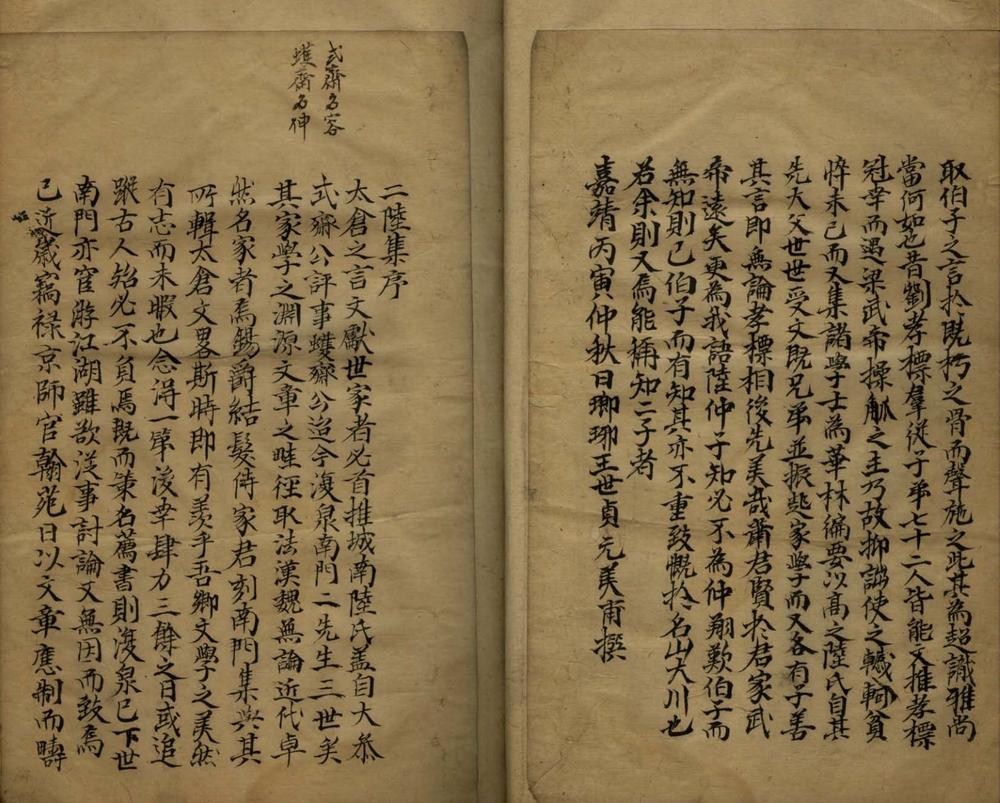 取伯子之言於既朽之骨而聲施之此其為超識雅尚
當何如也昔劉孝標羣從子弟七十二人皆能文推孝標
冠幸而遇梁武帝操觚之主乃故抑詘使之轗軻貧
悴未已而又集諸學士為華林徧要以高之陸氏自其
先大父世世受文既兄弟並振起家學而又各有子善
其言即無論孝標相後先美哉蕭君賢於君家武
帝遠矣更為我語陸仲子知必不為仲翔歎伯子而
無知則已伯子而有知其亦不重致慨於名山大川也
若余則又焉能稱知二子者
嘉靖丙寅仲秋日瑯琊王世貞元美甫撰
式齋名容
蠖齋名伸
二陸集序
太倉之言文獻世家者必首推城南陸氏盖自大叅
式齋公評事蠖齋公迨今浚泉南門二先生三世矣
其家學之淵源文章之畦徑取法漢魏無論近代卓
然名家者焉錫爵結髮侍家君刻南門集與其
所輯太倉文畧斯時即有羨乎吾鄉文學之美然
有志而未暇也念得一第後幸肆力三餘之日或追
蹤古人知必不負焉既而策名薦書則浚泉已下世
南門亦宦游江湖雖欲從事討論又無因而致焉
已近歲竊祿京師官翰苑日以文章應制而疇